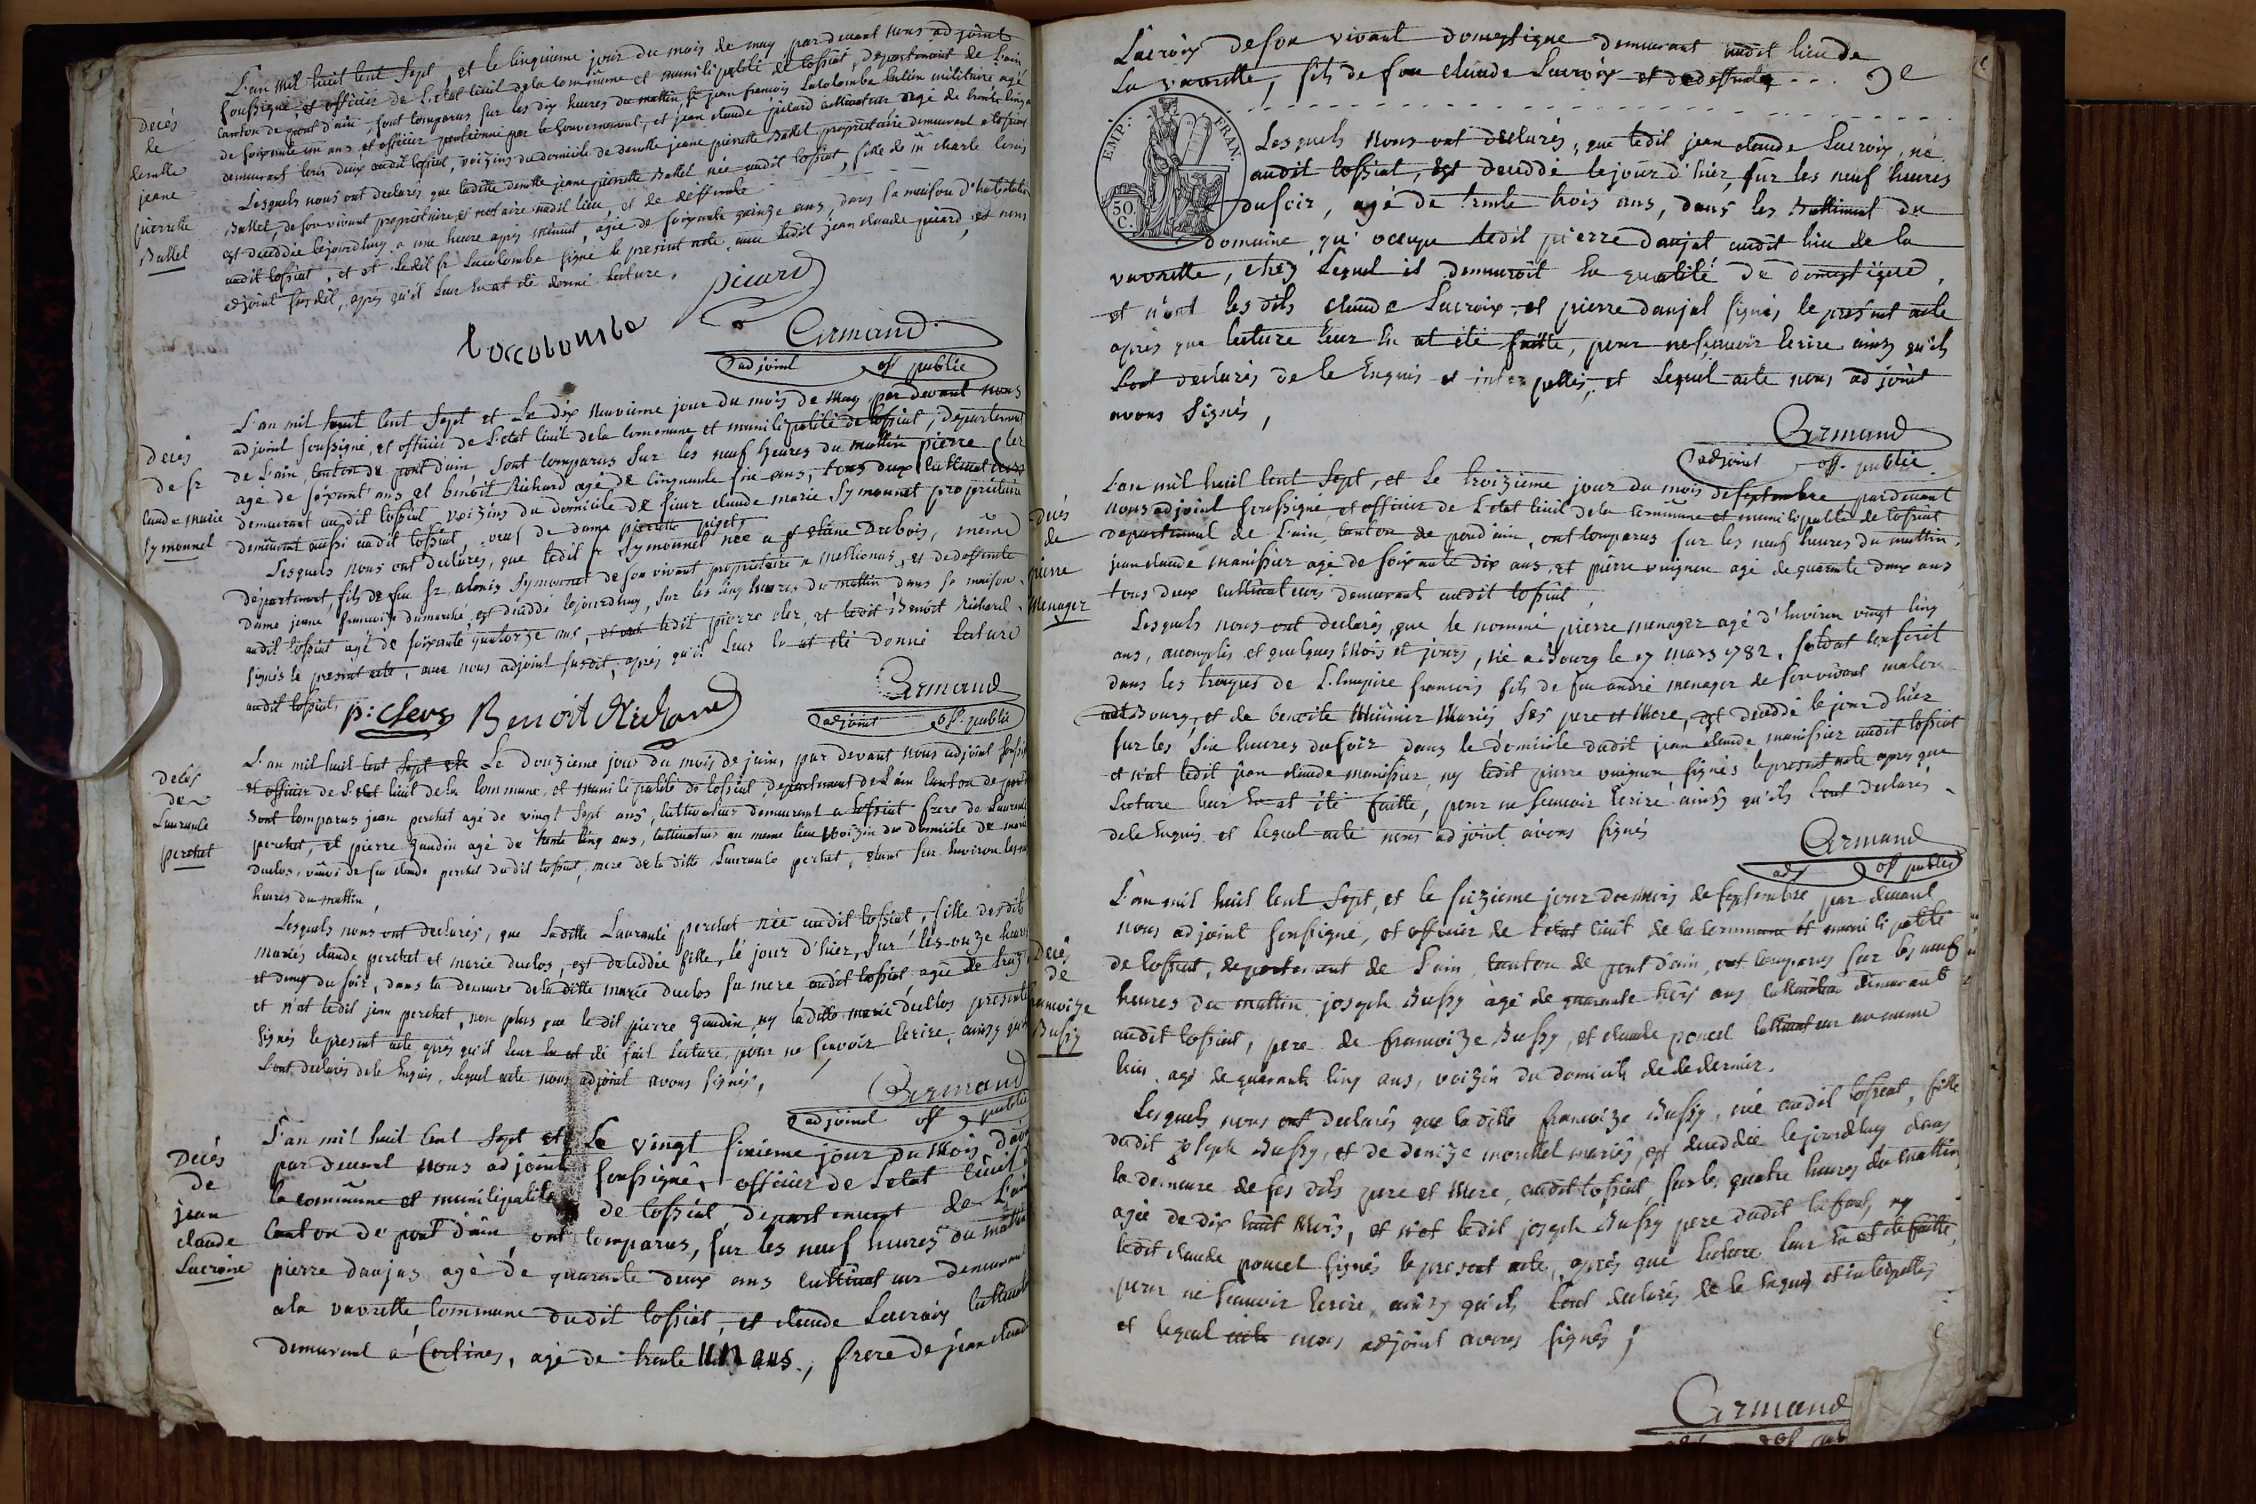 L'an mil huit cent sept, et le cinquieme jour du mois de may pardevant nous adjoint
soussigné, et officier de l'etat civil de la commune et municipalité de tossiat, departement de l'ain
canton de pont d'ain, sont comparus sur les dix heures du mattin, sr jean francois Lacolombe ancien militaire agé
de soixante un ans et officier pentionné par le gouvernement, et jean claude picard cultivateur agé de trente cinq
demeurant tous deux audit tossiat, voizins du domicile de demlle jeane pierrette Ballet propriettaire demeurant a tossiat
Lesquels nous ont declarés que laditte demlle jeane pierrette Ballet née audit tossiat, fille de me charle
Ballet, de son vivant propriettaire, et nottaire audit lieu et de deffunte
est decedée lejourdhuy a une heure après minuit, agée de soixante quinze ans, dans sa maison d'habitation
audit tossiat, et et ledit sr Lacolombe signé le present acte, avec ledit jean claude picard, et nous
adjoint susdit, après qu'il leur en at été donné lecture.
Decés
de
demlle
jeane
pierrette
Ballet
picard
laccolombe
Armand
adjoint off public
L'an mil huit cent sept et Le dix neuvieme jour du mois de may par devant nous
adjoint soussigné, et officier de l'etat civil de la commune et municipalité de tossiat, departement
de l'ain, canton de pont d'ain, sont comparus sur les neuf heures du mattin pierre cler
agé de soixante ans et benoit Richard agé de cinquante six ans, tous deux cultivateurs
demeurant audit tossiat voizins du domicile de sieur claude marie Symonnet propriétaire
demeurant aussi audit tossiat, veuf de dame pierrette piget,
Lesquels nous ont declarés, que ledit sr Symonnet née a st etiene Dubois, même
departement, fils de feu sr alexis Symonnet de son vivant propriettaire a mellionas, et de deffunte
dame jeane francoise dumarché, est decedé lejourdhuy, sur les cinq heures du mattin dans sa maison
audit tossiat agé de soixante quatorze ans, et ont ledit pierre cler, et ledit Benoit Richard
signés le present acte, avec nous adjoint susdit, après qu'il leur en at été donné lecture
audit tossiat,
Decés
de sr
claude marie
Symonnet
p: clerg Benoit Richard
Armand
adjoint off. public
L'an mil huit cent sept et Le douzieme jour du mois de juin, par devant nous adjoint soussigné
et officier de l'etat civil de la commune, et municipalité de tossiat departement de l'ain canton de pont
sont comparus jean perchet agé de vingt sept ans, cultivateur demeurant a tossiat frere de Laurance
perchet, et pierre gaudin agé de trente cinq ans, cultivateur au meme lieu voizin du domicile de marie
duclos, veuve de feu claude perchet dudit tossiat, mere de la ditte Laurance perchet, etant sur environ les
heures du mattin,
Lesquels nous ont declarés, que laditte Laurance perchet née audit tossiat, fille desdits
mariés claude perchet et marie duclos, est decedée fille, le jour d'hier, sur les onze heures
et demy du soir, dans la demeure de la ditte marie duclos sa mere audit tossiat, agée de
et n'at ledit jean perchet, non plus que le dit pierre gaudin, ny laditte marie duclos presente
signés le present acte après qu'il leur en at été fait lecture, pour ne scavoir ecrire, ainsy qu'ils
l'ont declarés de le enquis, lequel acte nous adjoint avons signés,
Decés
de
Laurance
perchet
Armand
adjoint off public
L'an mil huit cent sept et Le vingt sixieme jour du mois d'aou
par devant nous adjoint soussigné, officier de l'etat civil
la commune et municipalité de tossiat, departement de l'ain
canton de pont d'ain ont comparus, sur les neuf heures du mattin
pierre danjas agé de quarante deux ans cultivateur demeurant
a la vavrette, commune dudit tossiat, et claude Lacroix cultivateur
demeurant à Certines, agé de trente un ans, frere de jean claude
Decés
de
jean
claude
Lacroix
Lacroix de son vivant domestique demeurant audit lieu de
La vavrette, fils de feu claude Lacroix et de deffunte
EMP. FRAN.
50 C.
Lesquels nous ont declarés, que ledit jean claude Lacroix, né
audit tossiat, est decedé le jour d'hier, sur les neuf heures
du soir, agé de trente trois ans, dans les Battiment du
domaine, qu'occupe ledit pierre danjat audit lieu de la
vavrette, chez lequel il demeuroit en qualité de domestique,
et n'ont les dits claude Lacroix, et pierre danjat signés le present acte
après que lecture leur en at été faitte, pour ne scavoir ecrire ainsy qu'ils
l'ont declarés de le enquis et interpellés, et lequel acte nous adjoint
avons signés,
Armand
adjoint off. public
L'an mil huit cent sept, et le troizieme jour du mois de septembre pardevant
nous adjoint soussigné, et officier de l'etat civil de la commune et municipalité de tossiat
departement de l'ain, canton de pond'ain, ont comparus sur les neuf heures du mattin,
jean claude manissier agé de soixante dix ans, et pierre vuignon agé de quarante deux ans,
tous deux cultivateurs demeurant audit tossiat,
Lesquels nous ont declarés, que le nommé pierre menager agé d'environ vingt cinq
ans, accomplis et quelques mois et jours, né a Bourg le 17 mars 1782, soldat conscrit
dans les troupes de l'empire francois fils de feu andré menager de son vivant
at Bourg, et de benoite Munier mariés ses pere et mere, est decedé le jour d'hier
sur les six heures du soir dans le domicile dudit jean claude manissier audit tossiat
et n'at ledit jean claude manissier, ny ledit pierre vuignon signés le present acte apres que
lecture leur en at été faitte, pour ne scavoir ecrire ainsy qu'ils l'ont declarés
de le enquis et lequel acte nous adjoint avons signés
Decés
de
pierre
Menager
Armand
adj off public
L'an mil huit cent sept, et le seizieme jour du mois de septembre par devant
nous adjoint soussigné, et officier de l'etat civil de la commune et municipalité
de tossiat, departement de l'ain, canton de pont d'ain, ont comparus sur les neuf
heures du mattin joseph Bussy agé de quarante trois ans cultivateur demeurant
audit tossiat, pere de francoize Bussy, et claude poncet cultivateur au meme
lieu, agé de quarante cinq ans, voizin du domicile de ce dernier.
Lesquels nous ont declarés que la ditte francoize Bussy, née audit tossiat, fille
dudit joseph Bussy, et de denize monchel mariés, est decedée lejourdhuy dans
la demeure de ses dits pere et mere, audit tossiat, sur les quatre heures du mattin
agée de dix huit mois, et n'ot ledit joseph Bussy pere dudit enfant, ny
ledit claude poncet signés le present acte, après que lecture leur en at été faitte,
pour ne scavoir ecrire, ainsy qu'ils l'ont declarés de le enquis et interpellés
et lequel acte nous adjoint avons signés;
Decés
de
francoize
Bussy
Armand